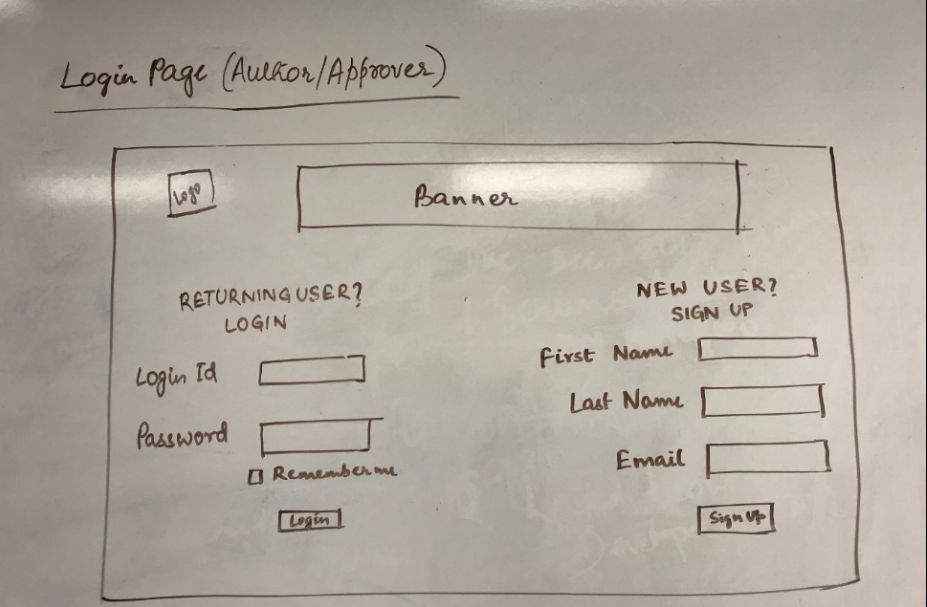 Login Page (Author/Approver)
Logo
Banner
RETURNING USER?
LOGIN
Login Id
Password
Remember me
Login
NEW USER?
SIGN UP
First Name
Last Name
Email
Sign Up